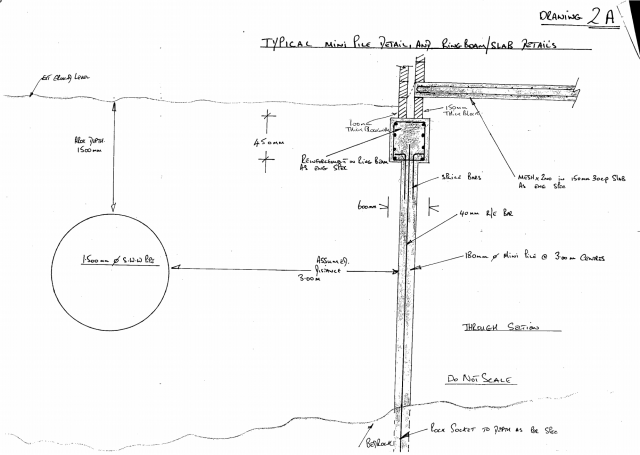 DRAWING 2A
TYPICAL MINI PILE DETAIL, AND RING BEAM/SLAB DETAILS
EXT GROUND LEVEL
150mm
THIN BLOCK
100mm
450mm
DEPTH
1500mm
REINFORCEMENT IN RING BEAM
AS ENG SPEC
MESH x 2NO IN 150mm DEEP SLAB
AS ENG SPEC
SPLICE BARS
600mm
40mm R/E BAR
1500mm Ø S.W.W PIPE
ASSUMED
DISTANCE
3.00M
180mm Ø MINI PILE @ 3.00M CENTRES
THROUGH SECTION
DO NOT SCALE
BEDROCK
ROCK SOCKET TO DEPTH AS PER SPEC